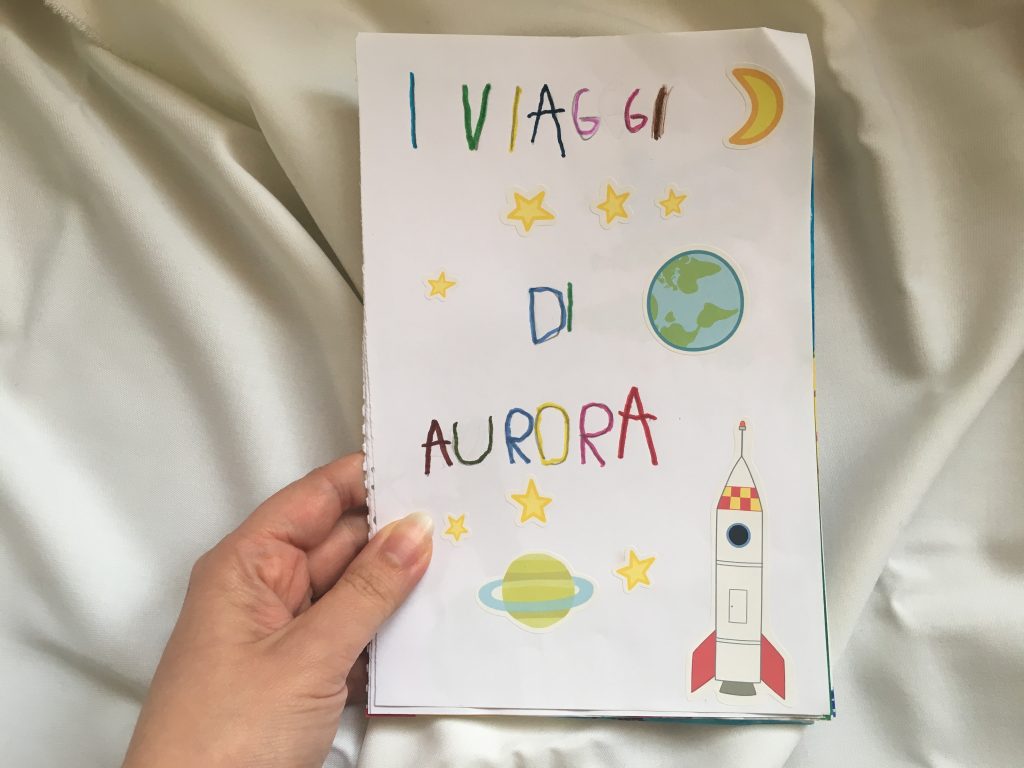 I VIAGGI
DI
AURORA